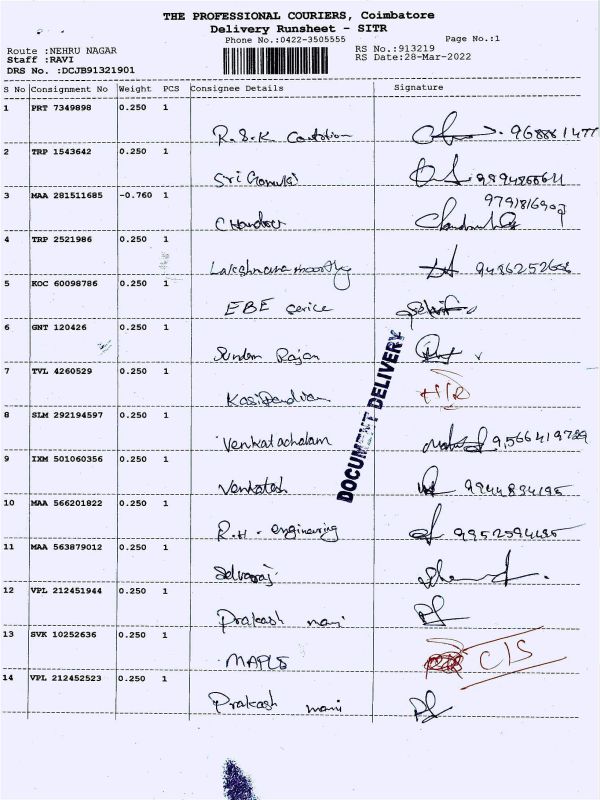 THE PROFESSIONAL COURIERS, Coimbatore
Delivery Runsheet - SITR
Phone No.:0422-3505555
Page No.:1
Route :NEHRU NAGAR
RS No.:913219
Staff :RAVI
RS Date:28-Mar-2022
DRS No. :DCJB91321901
S No Consignment No Weight PCS Consignee Details Signature
1 PRT 7349898 0.250 1
R.S.K
2 TRP 1543642 0.250 1
Sri
3 MAA 281511685 -0.760 1
9791816907
4 TRP 2521986 0.250 1
Lakshmana moorthy
5 KOC 60098786 0.250 1
EBE serice
6 GNT 120426 0.250 1
Sundara Rajan
7 TVL 4260529 0.250 1
Kasipandian
8 SLM 292194597 0.250 1
Venkatachalam 9566419789
9 IXM 501060356 0.250 1
Venkatesh 9944894195
10 MAA 566201822 0.250 1
R.H. engineering
11 MAA 563879012 0.250 1
Selvaraj
12 VPL 212451944 0.250 1
Prakash mani
13 SVK 10252636 0.250 1
MAPLS C/S
14 VPL 212452523 0.250 1
Prakash mani
DOCUMENT DELIVERY